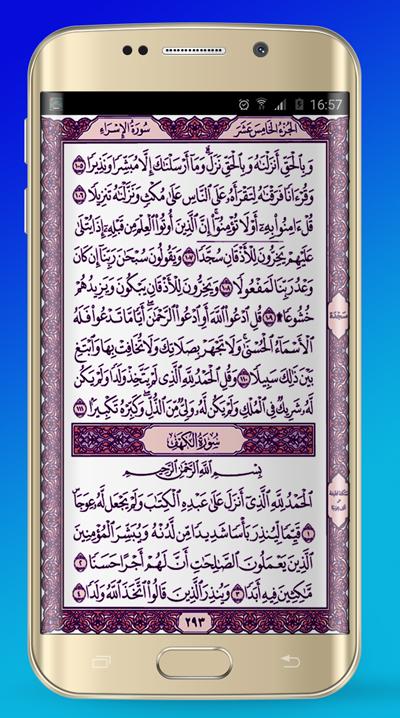 16:57
الجزء الخامس عشر
سورة الإسراء
وَبِالْحَقِّ أَنزَلْنَاهُ وَبِالْحَقِّ نَزَلَ ۗ وَمَا أَرْسَلْنَاكَ إِلَّا مُبَشِّرًا وَنَذِيرًا ١٠٥
وَقُرْءَانًا فَرَقْنَاهُ لِتَقْرَأَهُ عَلَى النَّاسِ عَلَىٰ مُكْثٍ وَنَزَّلْنَاهُ تَنزِيلًا ١٠٦
قُلْ ءَامِنُوا بِهِ أَوْ لَا تُؤْمِنُوا ۚ إِنَّ الَّذِينَ أُوتُوا الْعِلْمَ مِن قَبْلِهِ إِذَا يُتْلَىٰ
عَلَيْهِمْ يَخِرُّونَ لِلْأَذْقَانِ سُجَّدًا ١٠٧ وَيَقُولُونَ سُبْحَانَ رَبِّنَا إِن كَانَ
وَعْدُ رَبِّنَا لَمَفْعُولًا ١٠٨ وَيَخِرُّونَ لِلْأَذْقَانِ يَبْكُونَ وَيَزِيدُهُمْ
خُشُوعًا ۩ ١٠٩ قُلِ ادْعُوا اللَّهَ أَوِ ادْعُوا الرَّحْمَٰنَ ۖ أَيًّا مَّا تَدْعُوا فَلَهُ
الْأَسْمَاءُ الْحُسْنَىٰ ۚ وَلَا تَجْهَرْ بِصَلَاتِكَ وَلَا تُخَافِتْ بِهَا وَابْتَغِ
بَيْنَ ذَٰلِكَ سَبِيلًا ١١٠ وَقُلِ الْحَمْدُ لِلَّهِ الَّذِي لَمْ يَتَّخِذْ وَلَدًا وَلَمْ يَكُن
لَّهُ شَرِيكٌ فِي الْمُلْكِ وَلَمْ يَكُن لَّهُ وَلِيٌّ مِّنَ الذُّلِّ ۖ وَكَبِّرْهُ تَكْبِيرًا ١١١
سورة الكهف
بِسْمِ اللَّهِ الرَّحْمَٰنِ الرَّحِيمِ
الْحَمْدُ لِلَّهِ الَّذِي أَنزَلَ عَلَىٰ عَبْدِهِ الْكِتَابَ وَلَمْ يَجْعَل لَّهُ عِوَجًا
١ قَيِّمًا لِّيُنذِرَ بَأْسًا شَدِيدًا مِّن لَّدُنْهُ وَيُبَشِّرَ الْمُؤْمِنِينَ
الَّذِينَ يَعْمَلُونَ الصَّالِحَاتِ أَنَّ لَهُمْ أَجْرًا حَسَنًا ٢
مَّاكِثِينَ فِيهِ أَبَدًا ٣ وَيُنذِرَ الَّذِينَ قَالُوا اتَّخَذَ اللَّهُ وَلَدًا ٤
٢٩٣
سجدة